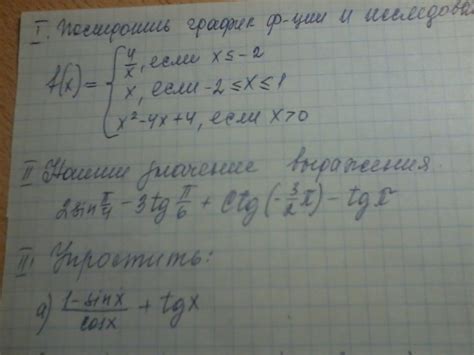 I. Построить график ф-ции и исследовать
f(x) = { 4/x, если x ≤ -2
x, если -2 ≤ x ≤ 1
x² - 4x + 4, если x > 0
II Найти значение выражения.
2 sin π/4 - 3 tg π/6 + ctg (- 3/2 π) - tg π
III. Упростить:
a) (1 - sin x)/(cos x) + tg x